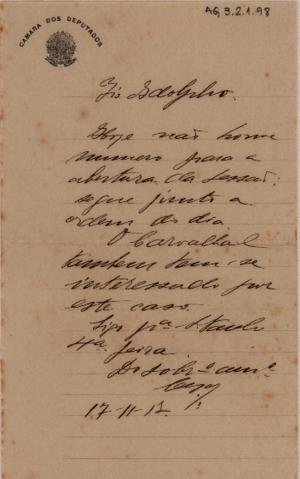 AG 3.2.1.98
CAMARA DOS DEPUTADOS
Tio Adolpho.
Hoje não houve
numero para a
abertura da sessão;
segue junto a
ordem do dia
O Carvalhal
tambem tem-se
interessado por
este caso.
Sigo pª S. Paulo
4ª feira
Do sobrº amº
17-11-17.